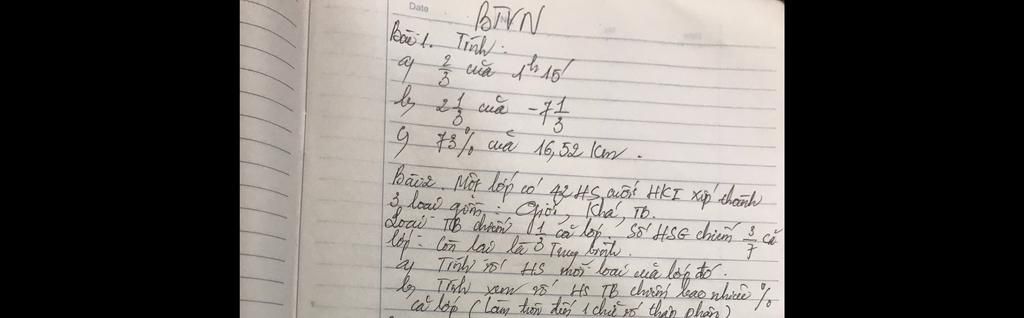 Date
BTVN
Bài 1. Tính:
a) 2/3 của 1h15'
b) 2 1/3 của -7 1/3
c) 73% của 16,52 Km.
Bài 2. Một lớp có 42 HS, cuối HKI xếp thành
3 loại gồm: Giỏi, Khá, TB.
Loại TB chiếm 1/3 cả lớp. Số HSG chiếm 3/7 cả
lớp. Còn lại là Trung bình.
a) Tính số HS mỗi loại của lớp đó.
b) Tính xem số HS TB chiếm bao nhiêu %
cả lớp (làm tròn đến 1 chữ số thập phân)